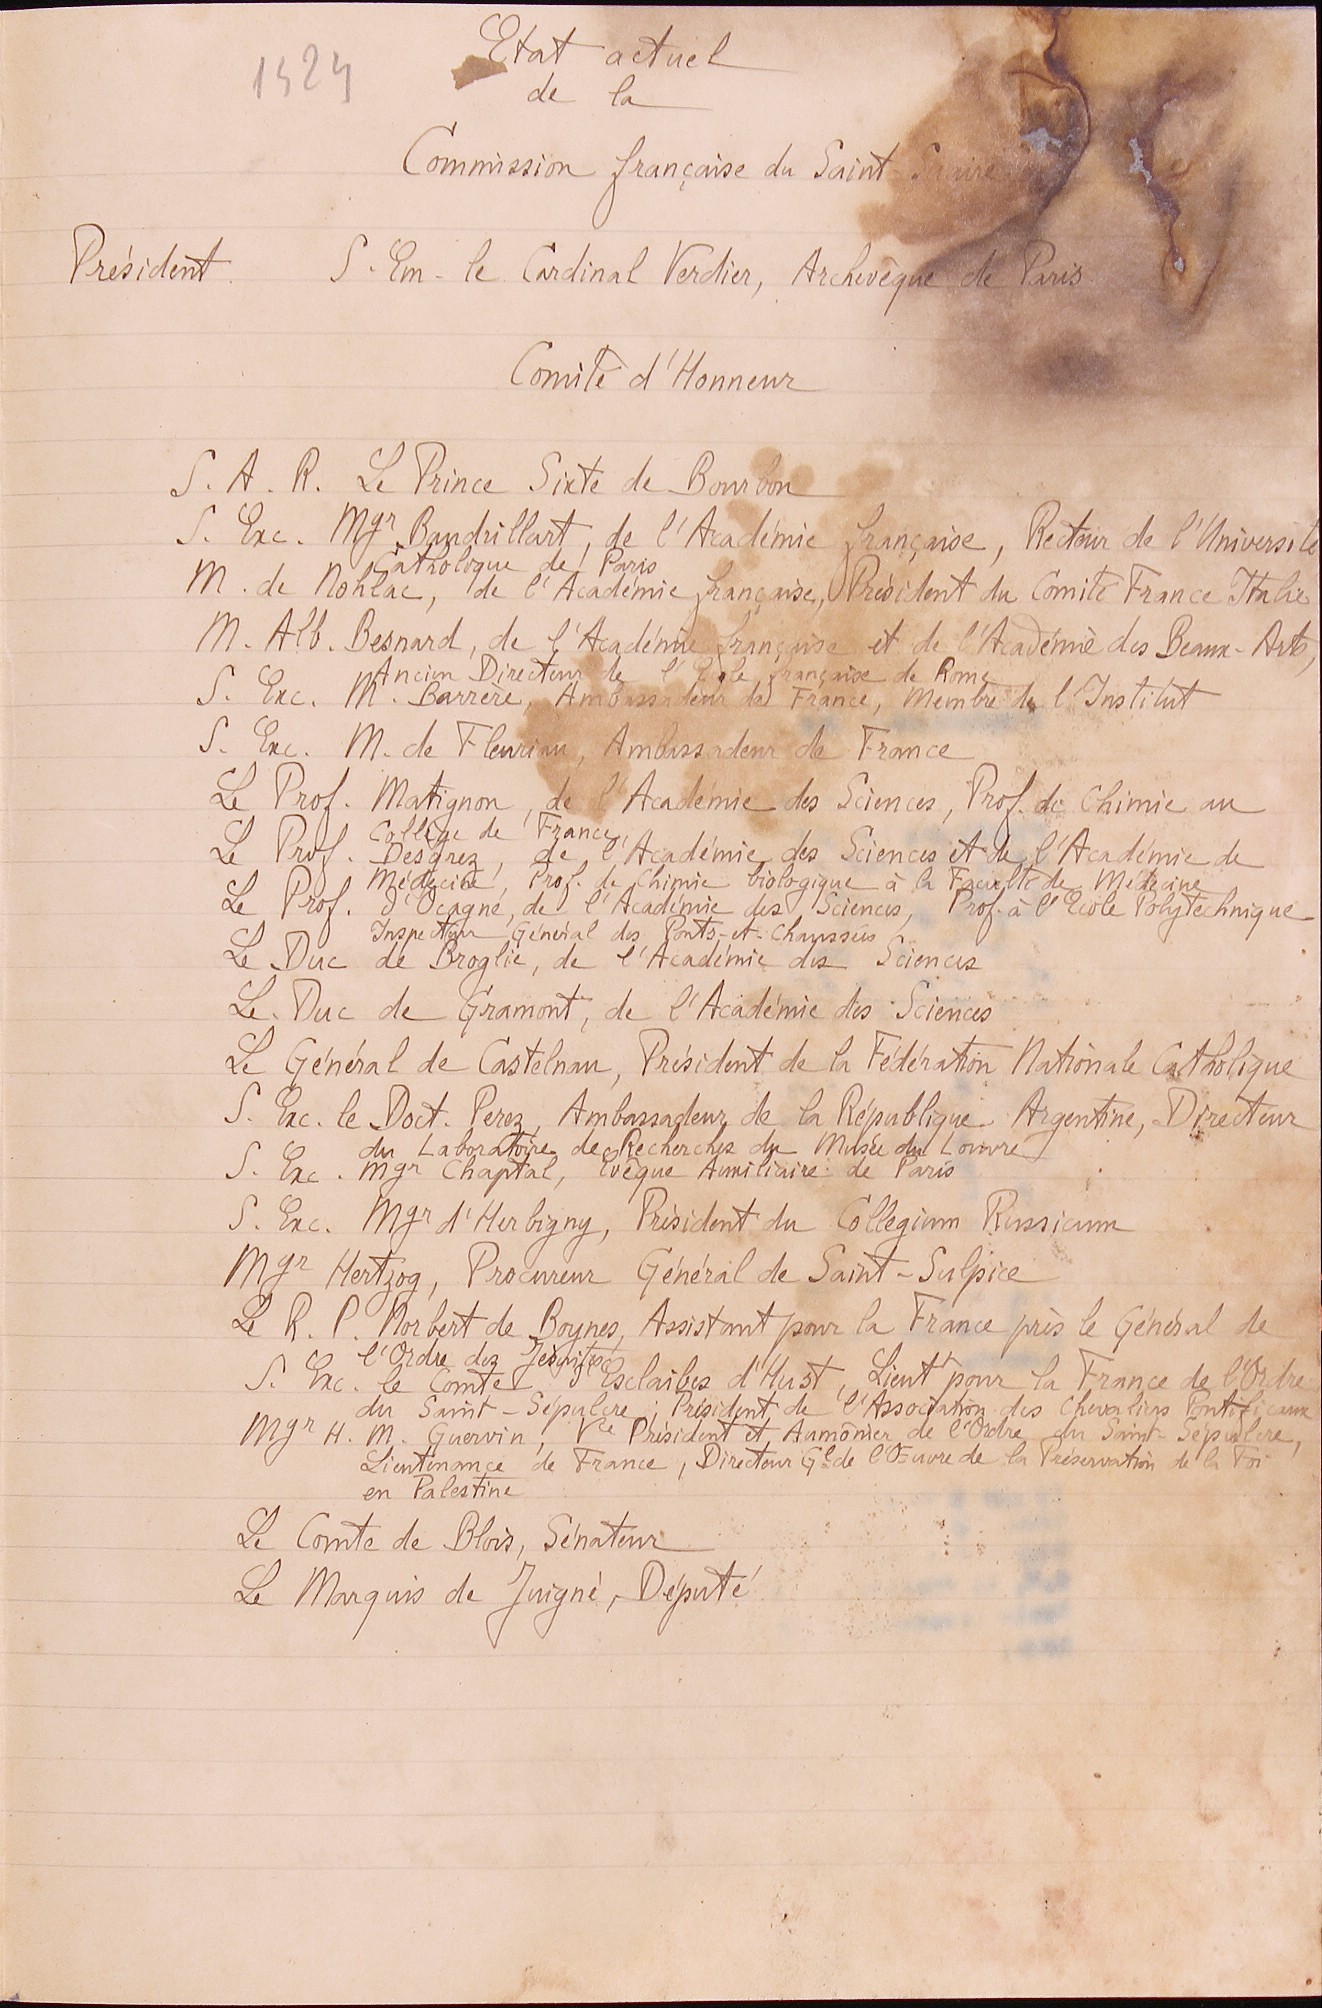 1929
Etat actuel
de la
Commission française du Saint Suaire
Président S. Em. le Cardinal Verdier, Archevêque de Paris
Comité d'Honneur
S. A. R. Le Prince Sixte de Bourbon
S. Exc. Mgr Baudrillart, de l'Académie française, Recteur de l'Université
Catholique de Paris
M. de Nohlac, de l'Académie française, Président du Comité France Italie
M. Alb. Besnard, de l'Académie française et de l'Académie des Beaux-Arts,
Ancien Directeur de l'Ecole française de Rome
S. Exc. M. Barrère, Ambassadeur de France, Membre de l'Institut
S. Exc. M. de Fleuriau, Ambassadeur de France
Le Prof. Matignon, de l'Académie des Sciences, Prof. de Chimie au
Collège de France,
Le Prof. Desgrez, de l'Académie des Sciences et de l'Académie de
Médecine, Prof. de Chimie biologique à la Faculté de Médecine
Le Prof. d'Ocagne, de l'Académie des Sciences, Prof. à l'Ecole Polytechnique
Inspecteur Général des Ponts-et-Chaussées
Le Duc de Broglie, de l'Académie des Sciences
Le Duc de Gramont, de l'Académie des Sciences
Le Général de Castelnau, Président de la Fédération Nationale Catholique
S. Exc. le Doct. Perez, Ambassadeur de la République Argentine, Directeur
du Laboratoire de Recherches du Musée du Louvre
S. Exc. Mgr Chaptal, Evêque Auxiliaire de Paris
S. Exc. Mgr d'Herbigny, Président du Collegium Russicum
Mgr Hertzog, Procureur Général de Saint-Sulpice
Le R. P. Norbert de Boynes, Assistant pour la France près le Général de
l'Ordre des Jésuites
S. Exc. le Comte d'Esclaibes d'Hust, Lieut^t pour la France de l'Ordre
du Saint-Sépulcre, Président de l'Association des Chevaliers Pontificaux
Mgr H. M. Guervin, V^ce Président et Aumônier de l'Ordre du Saint-Sépulcre,
Lieutenance de France, Directeur G^l de l'Œuvre de la Préservation de la Foi
en Palestine
Le Comte de Blois, Sénateur
Le Marquis de Juigné, Député